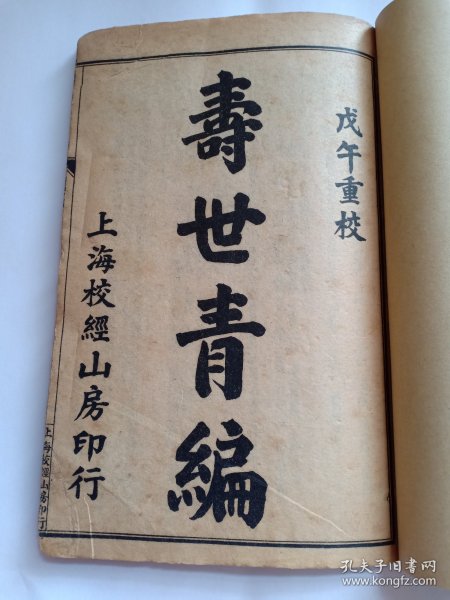 戊午重校
壽世青編
上海校經山房印行
上海校經山房印行
孔夫子旧书网
www.kongfz.com